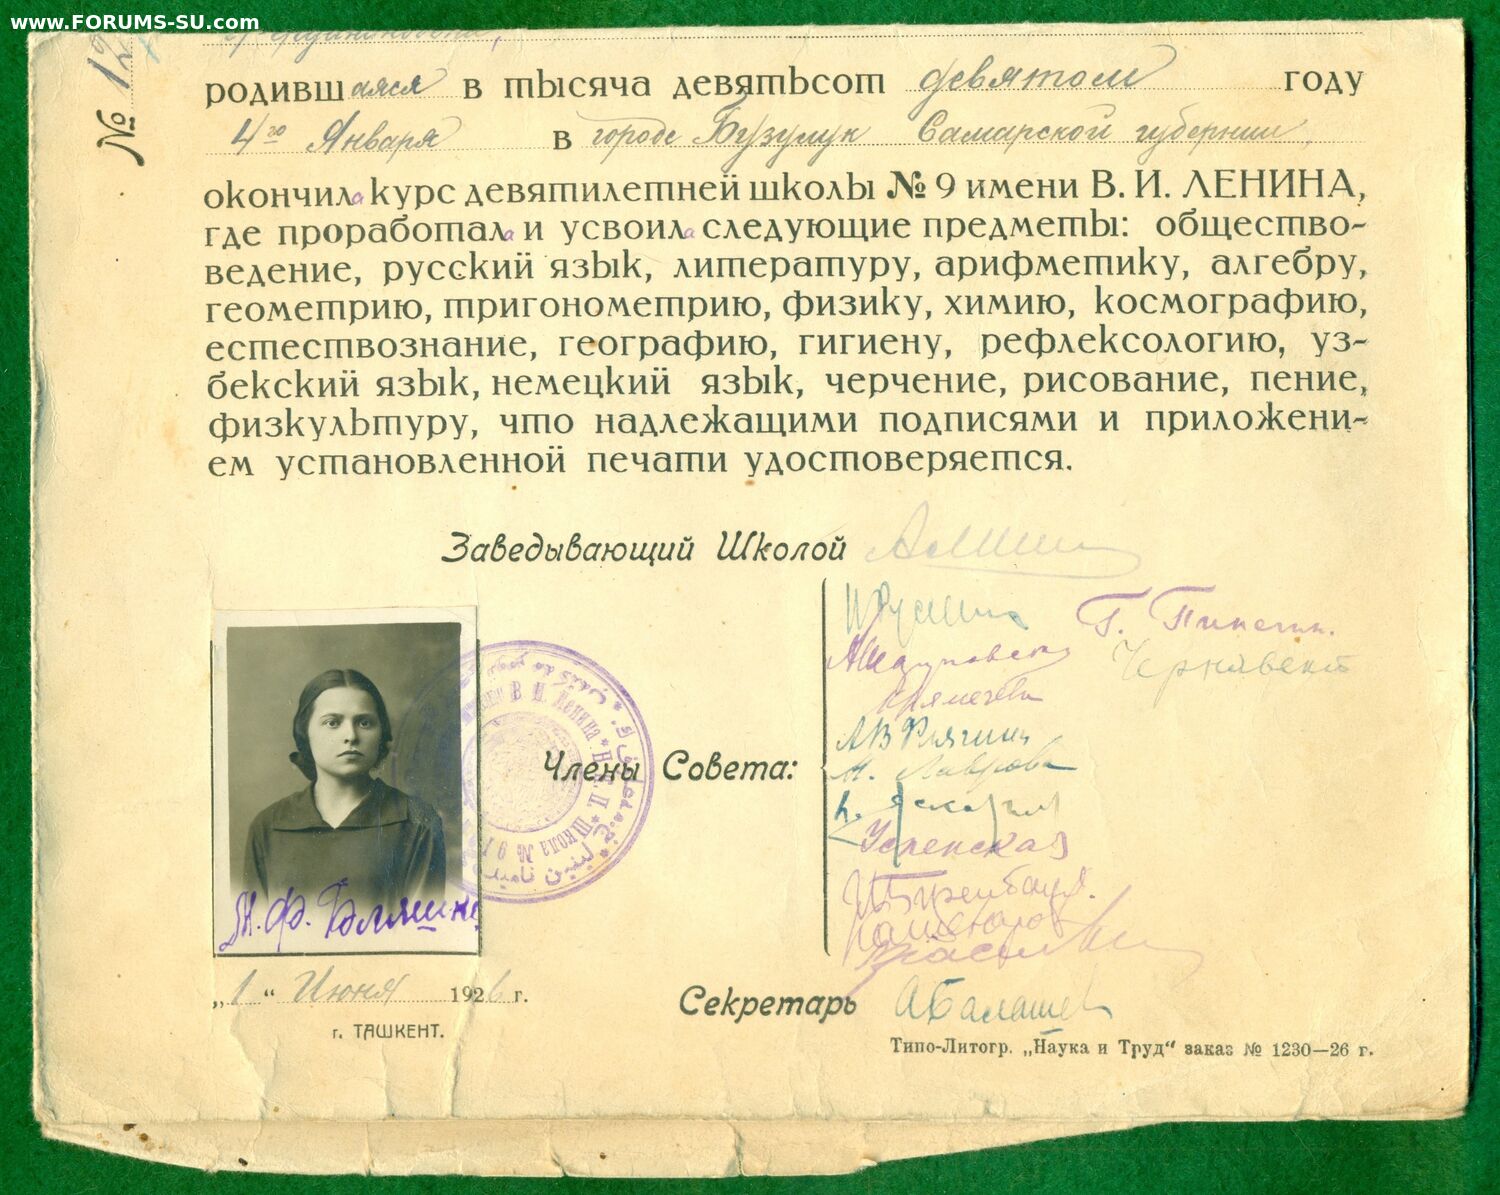 www.FORUMS-SU.com
№ 12
родившаяся в тысяча девятьсот девятом году
4го Января в городе Бузулук Самарской губернии,
окончила курс девятилетней школы № 9 имени В. И. ЛЕНИНА,
где проработала и усвоила следующие предметы: общество-
ведение, русский язык, литературу, арифметику, алгебру,
геометрию, тригонометрию, физику, химию, космографию,
естествознание, географию, гигиену, рефлексологию, уз-
бекский язык, немецкий язык, черчение, рисование, пение,
физкультуру, что надлежащими подписями и приложени-
ем установленной печати удостоверяется.
Заведывающий Школой
Г. Пинегин.
Члены Совета:
М. Лаврова
Успенская
В. И. Ленина * Н.К.П. * Школа № 9
„1" Июня 1926 г.
г. ТАШКЕНТ.
Секретарь АБалашев
Типо-Литогр. „Наука и Труд" заказ № 1230—26 г.